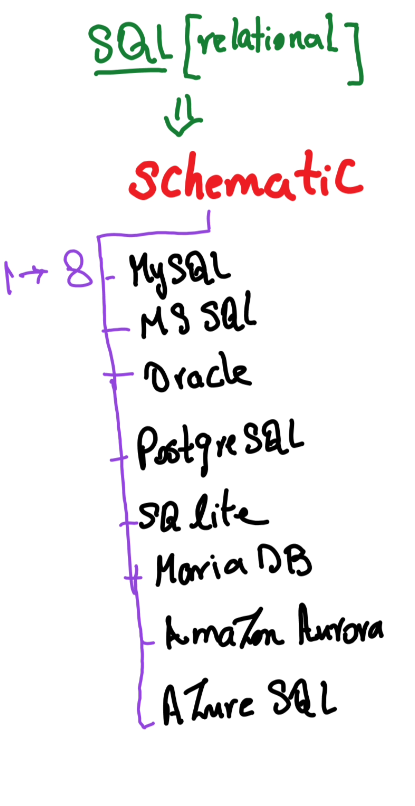 SQL [relational]
⇓
SchematiC
1 → 8
MySQL
MS SQL
Oracle
PostgreSQL
SQlite
Maria DB
AmaZon Aurora
AZure SQL